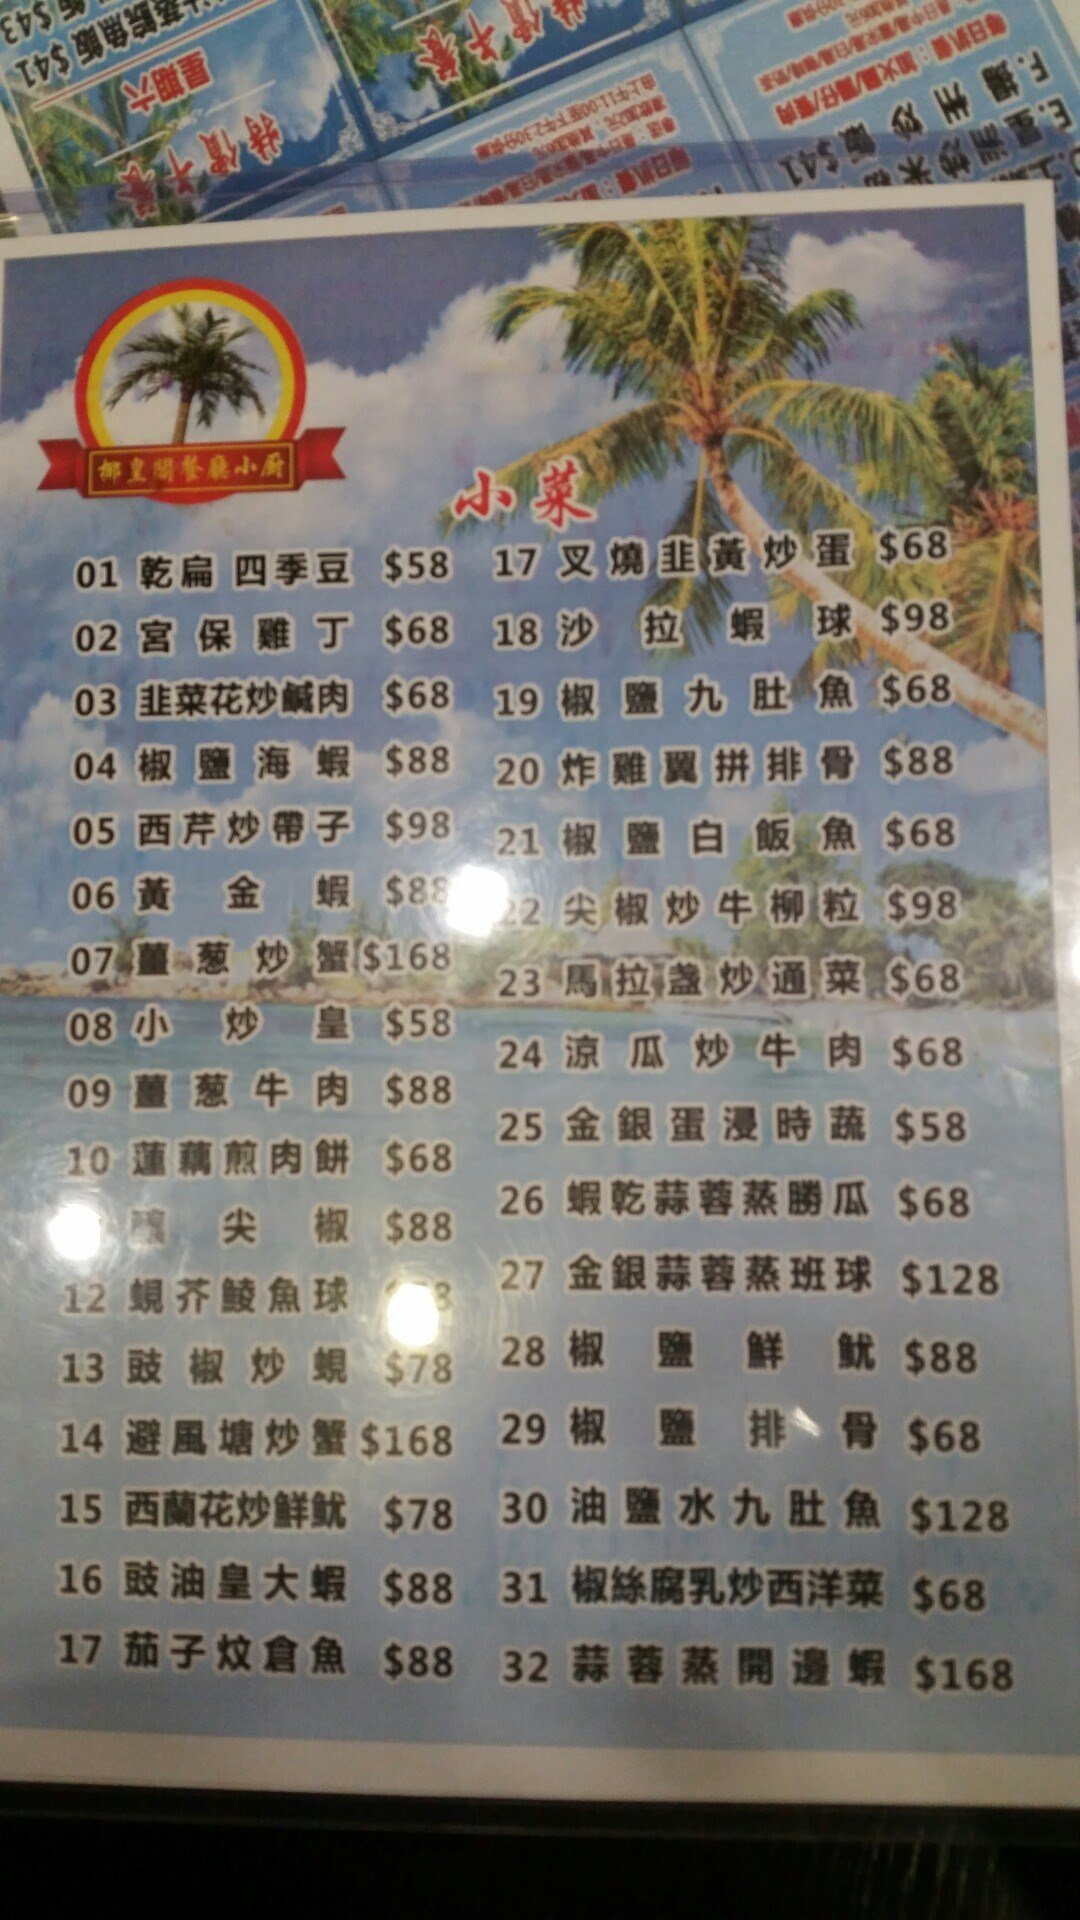 星期六
特價午餐
特價午餐
椰皇閣餐廳小廚
小菜
01 乾扁四季豆 $58
02 宮保雞丁 $68
03 韭菜花炒鹹肉 $68
04 椒鹽海蝦 $88
05 西芹炒帶子 $98
06 黃金蝦 $88
07 薑葱炒蟹 $168
08 小炒皇 $58
09 薑葱牛肉 $88
10 蓮藕煎肉餅 $68
尖椒 $88
12 蜆芥鯪魚球
13 豉椒炒蜆 $78
14 避風塘炒蟹 $168
15 西蘭花炒鮮魷 $78
16 豉油皇大蝦 $88
17 茄子炆倉魚 $88
17 叉燒韭黃炒蛋 $68
18 沙拉蝦球 $98
19 椒鹽九肚魚 $68
20 炸雞翼拼排骨 $88
21 椒鹽白飯魚 $68
22 尖椒炒牛柳粒 $98
23 馬拉盞炒通菜 $68
24 涼瓜炒牛肉 $68
25 金銀蛋浸時蔬 $58
26 蝦乾蒜蓉蒸勝瓜 $68
27 金銀蒜蓉蒸班球 $128
28 椒鹽鮮魷 $88
29 椒鹽排骨 $68
30 油鹽水九肚魚 $128
31 椒絲腐乳炒西洋菜 $68
32 蒜蓉蒸開邊蝦 $168